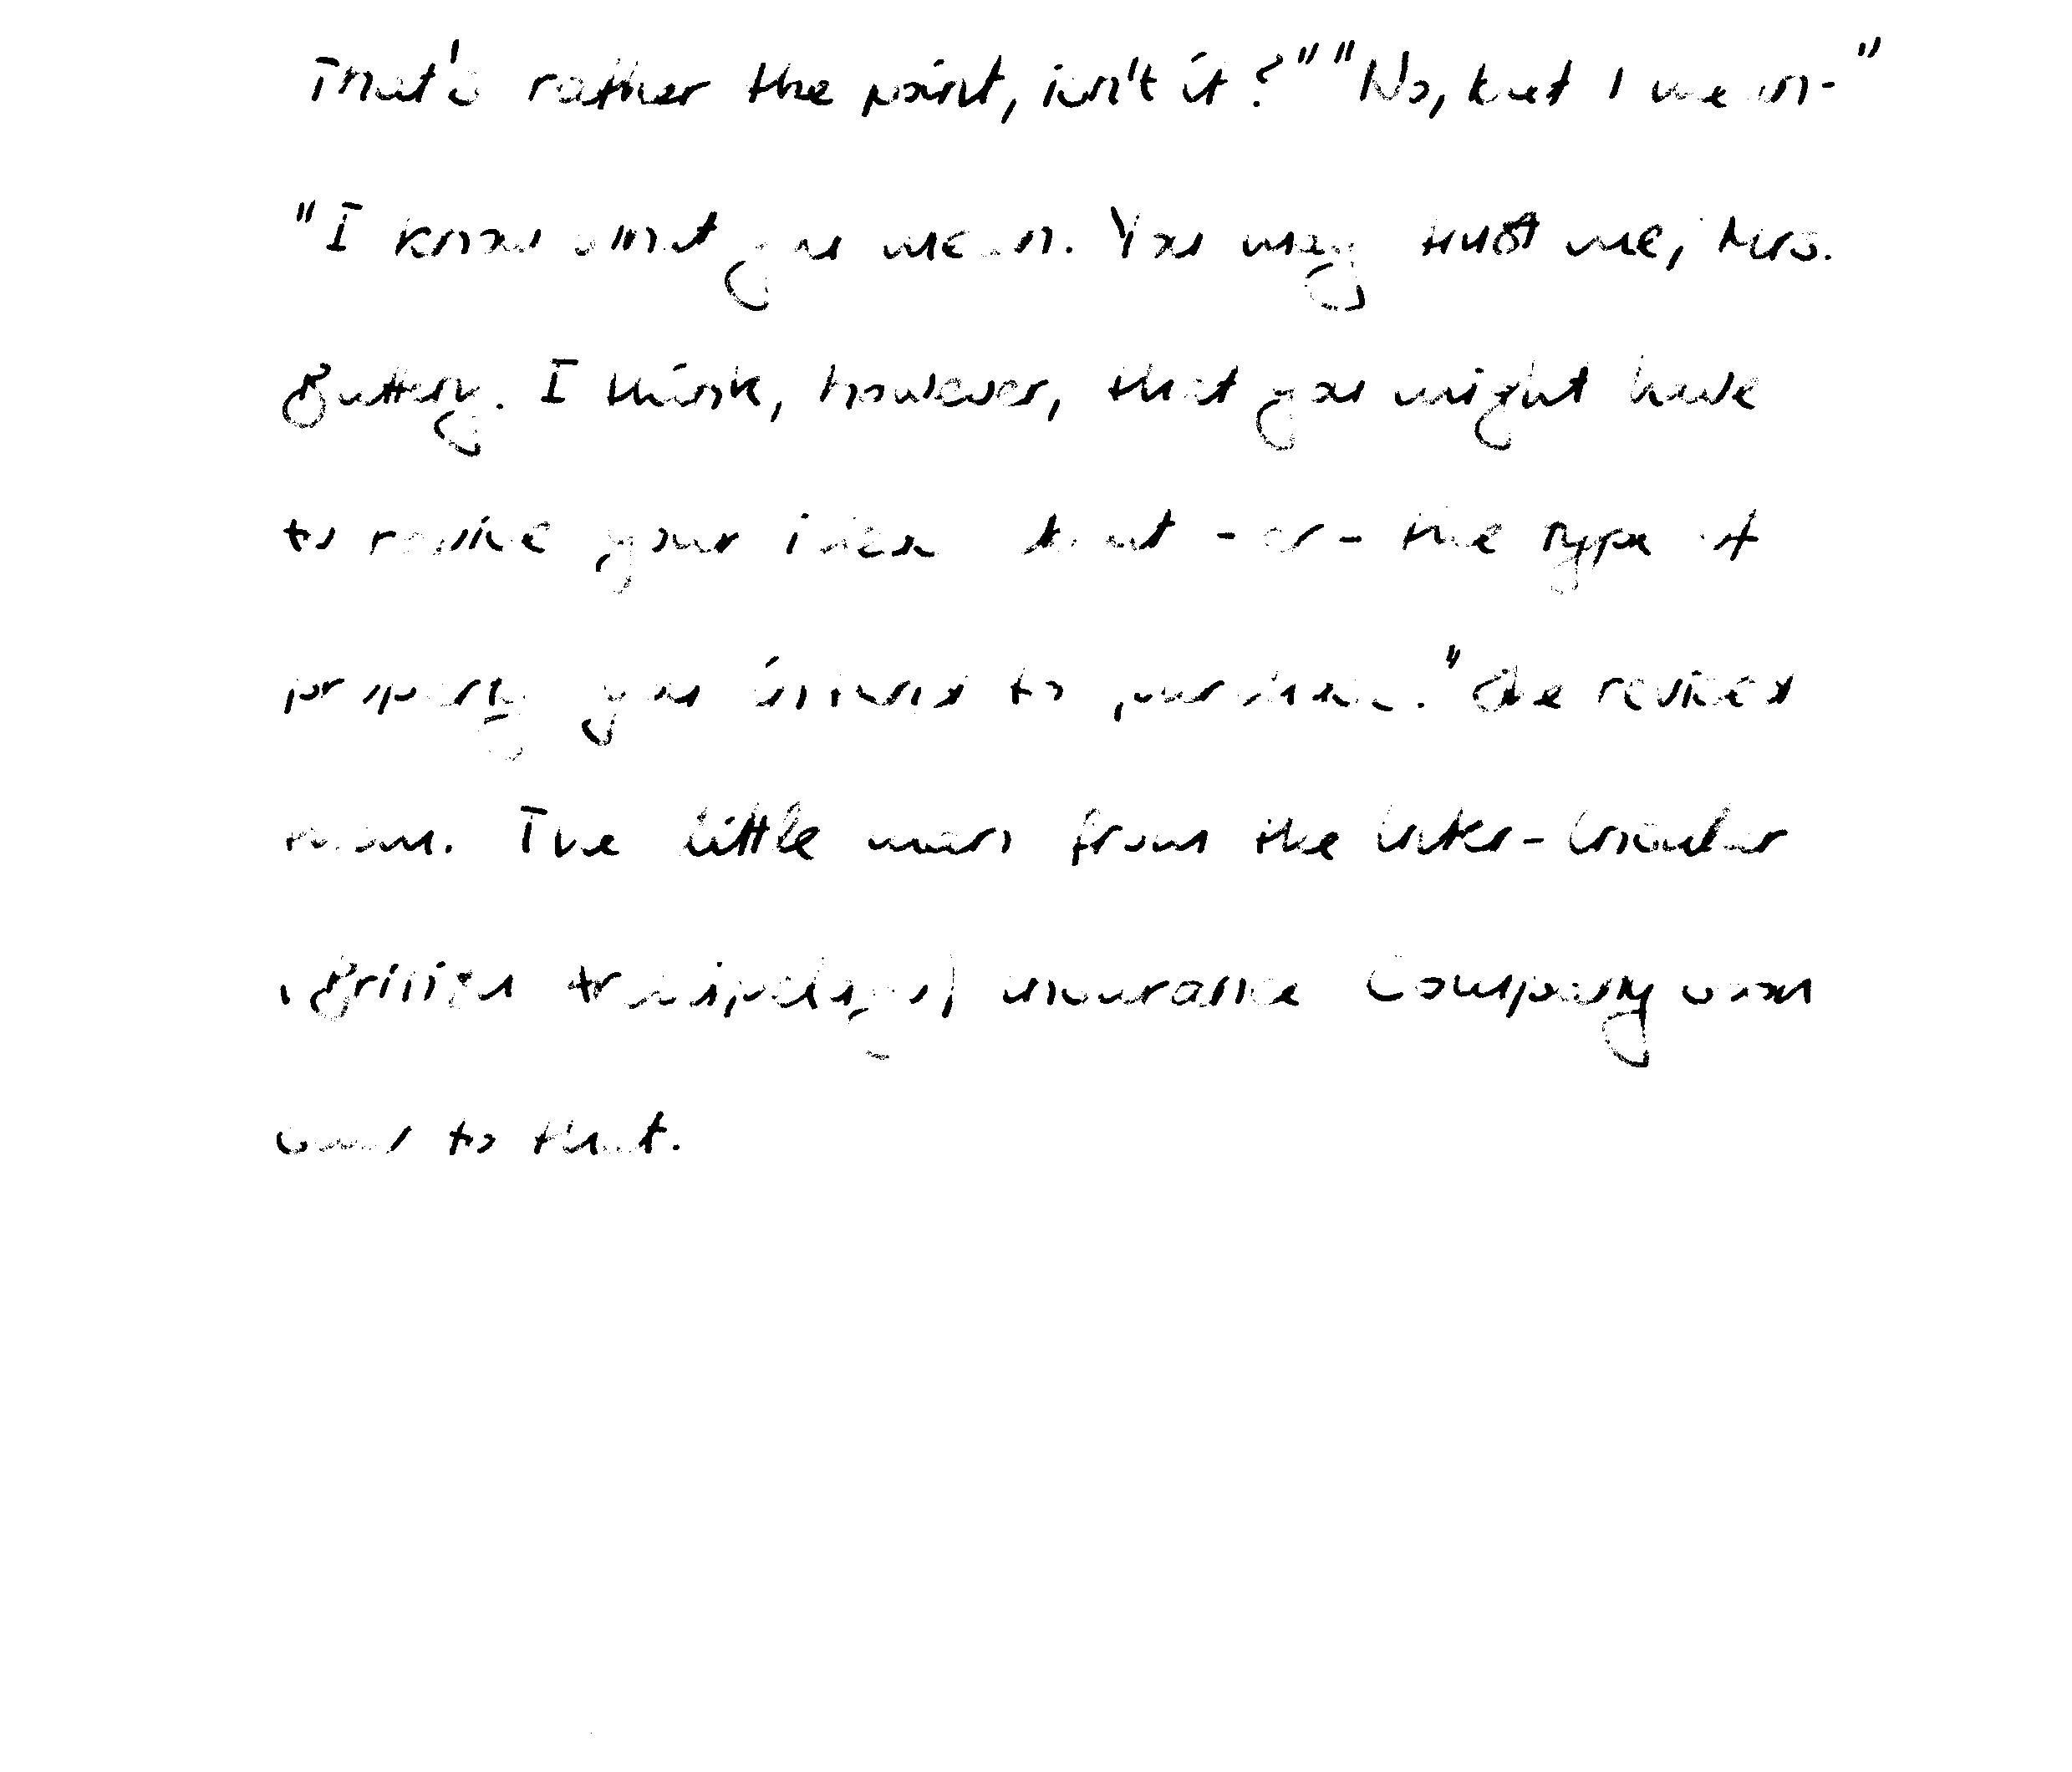 That's rather the point, isn't it?" "No, but I mean-"
"I know what you mean. You may trust me, Mrs.
Buttery. I think, however, that you might have
to revise your idea about -er- the type of
property you intend to purchase." She revised
them. The little man from the Inter-Insular
(British Archipelago) Insurance Company soon
saw to that.